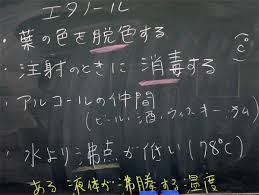 エタノール
・葉の色を脱色する
(℃)
・注射のときに消毒する
・アルコールの仲間
(ビール、酒、ウィスキー、ラム)
・水より沸点が低い(78℃)
ある液体が沸騰する温度